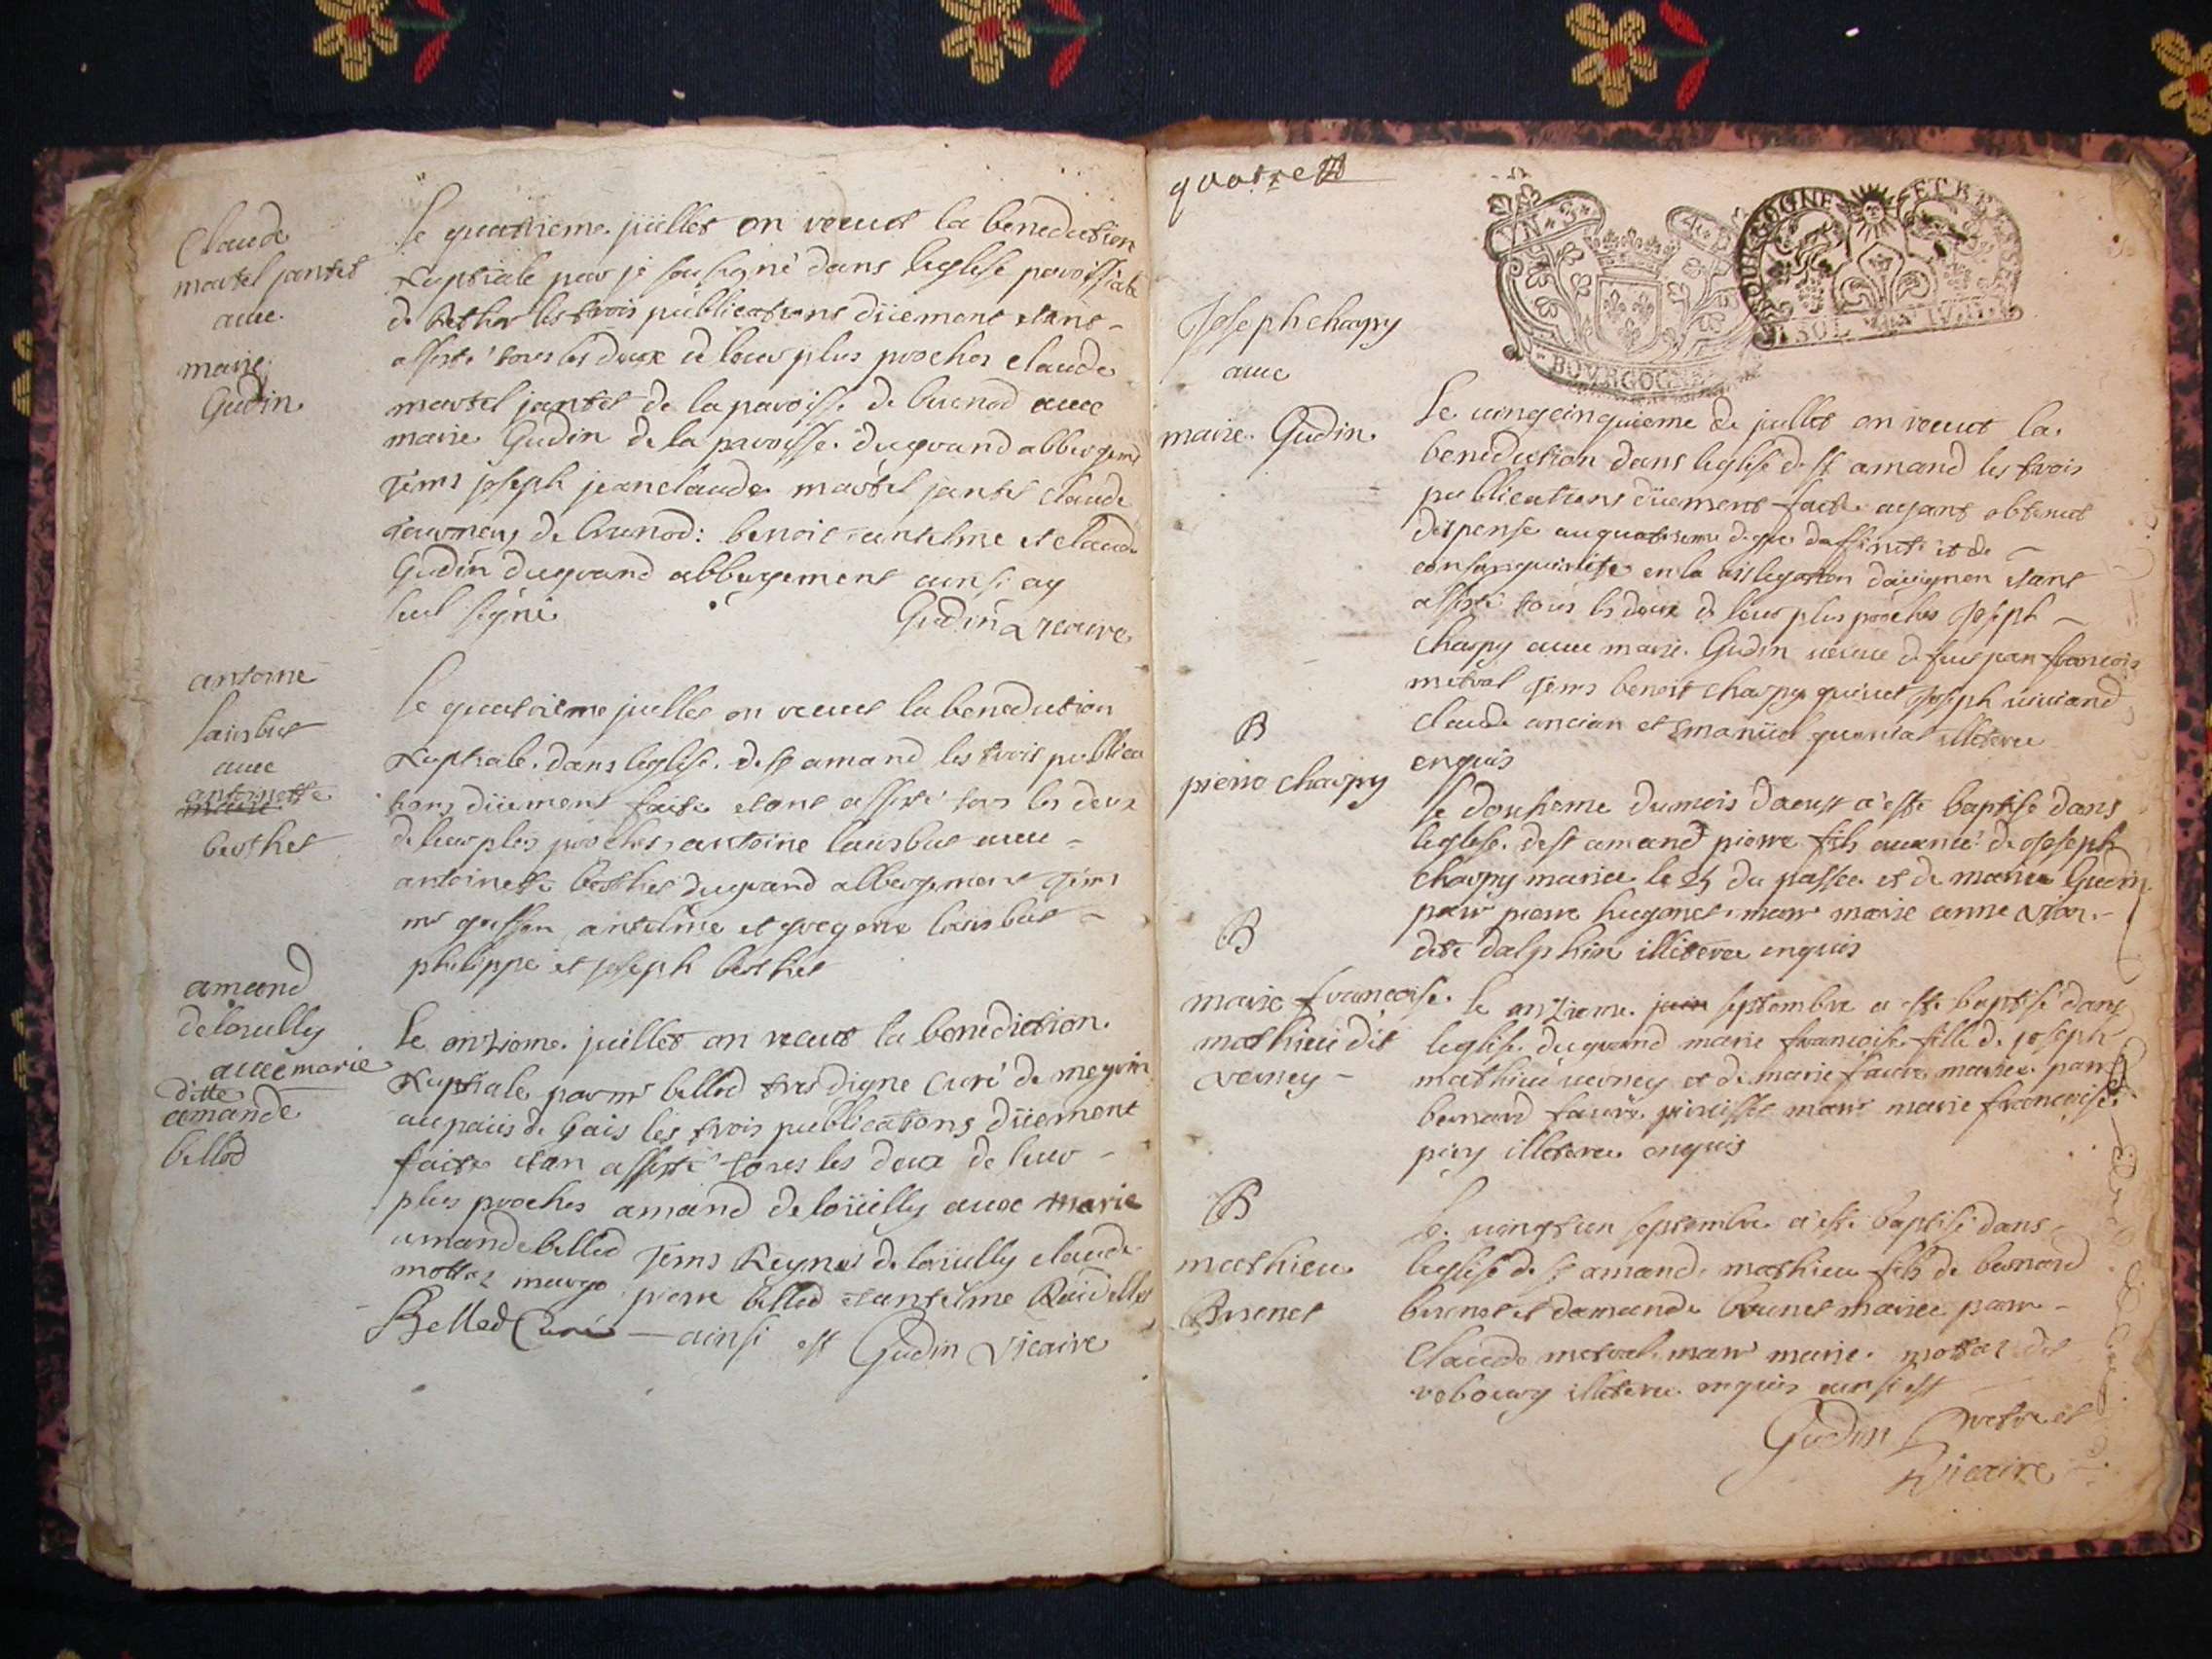 Claude
martel jantet
auec
marie
Gudin
le quatrieme juillet on receut la benediction
Nuptiale par je sousigné dans leglise paroissiale
de les trois publications düement etant
assisté tous les deux de leur plus proches claude
martel jantet de la paroisse de brenod auec
marie Gudin de la paroisse du grand abbergement
Tems joseph jean claude martel jantet claude
de brenod: benoit antelme et claude
Gudin du grand abbergement ainsi ay
seul signé
Gudin vicaire
antoine
lansbut
auec
antoinette
berthet
le quatrieme juillet on receut la benediction
Nuptiale dans leglise de st amand les trois publica
tions düement faite etant assisté tous les deux
de leur plus proches antoine lansbut auec
antoinette berthet du grand abbergement Tems
mr antelme et gregoire lansbut
philippe et joseph berthet
amand
delorülly
auec marie
ditte
amande
belled
le onzieme juillet on receut la benediction
Nuptiale par mr belled tres digne Curé de meyrin
au païs de Gais les trois publications düement
faite etan assisté tous les deux de leur
plus proches amand delorüilly auec marie
amande belled Tems Reymod delorüilly claude
mottaz pierre belled antelme
Belled Curé ainsi est Gudin vicaire
quatre
VN
BOVRGOGNE
BOURGOGNE ET BRESSE
SOL
Joseph charpy
auec
marie Gudin
le uingcinquieme de juillet on receut la
benediction dans leglise de st amand les trois
publications düement faite ayant obtenut
dispense au quatrieme degré daffinité et de
consanguinité en la uislegation dauignon etant
assisté tous les deux de leur plus proches Joseph
Charpy auec marie Gudin veuue de feut jean francois
metral Tems benoit charpy Joseph
claude ancian et Emanüel illiteree
enquis
B
pierre charpy
le douzieme du mois daoust a esté baptisé dans
leglise de st amand pierre fils de Joseph
charpy mariee le 25 du passee et de marie Gudin
parr pierre hugonet marr marie anne
dite dalphine illiteree enquis
B
marie francoise
mathieu dit
verney
le onzieme juin septembre a esté baptisé dans
leglise du grand marie francoise fille de joseph
mathieu uerney et de marie faure mariee parr
bernard faure marr marie francoise
illiteree enquis
B
mathieu
Brunet
le uingt un septembre a esté baptisé dans
leglise de st amand mathieu fils de bernard
brunet et damande brunet mariee parr
Claude metral marr marie mottaz dit
rebourg illiteree enquis ainsi est
Gudin pretre et
vicaire